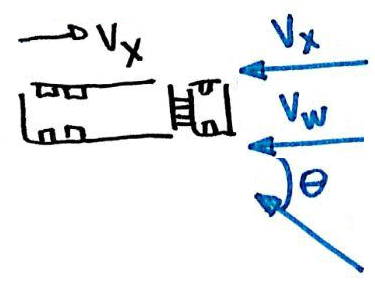 Vx
Vx
Vw
θ